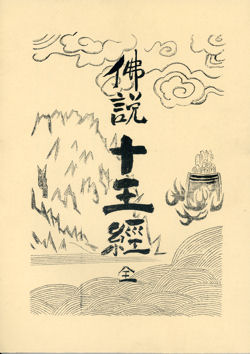 佛説十王經
全